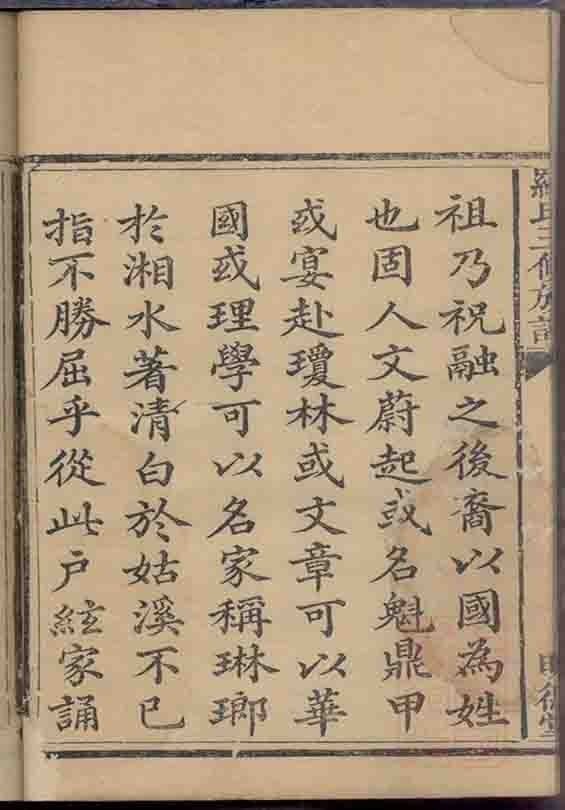 羅氏三修族譜
祖乃祝融之後裔以國為姓
也固人文蔚起或名魁鼎甲
或宴赴瓊林或文章可以華
國或理學可以名家稱琳瑯
於湘水著清白於姑溪不已
指不勝屈乎從此戶絃家誦